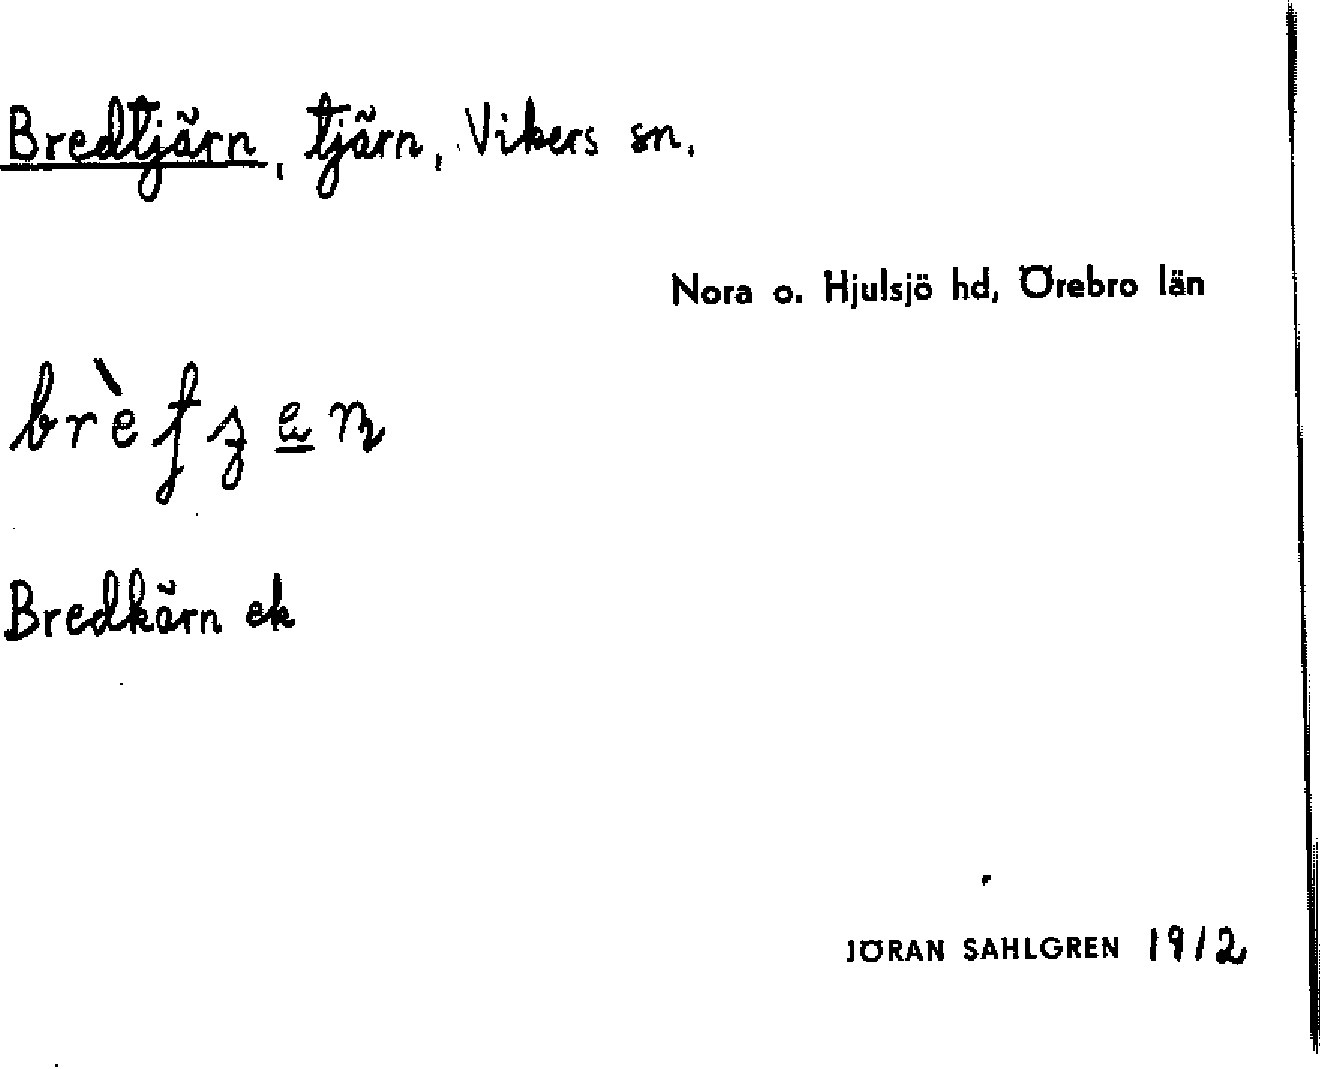 Bredtjärn, tjärn, Vikers sn.
Nora o. Hjulsjö hd, Örebro län
Bredkärn ek
JÖRAN SAHLGREN 1912